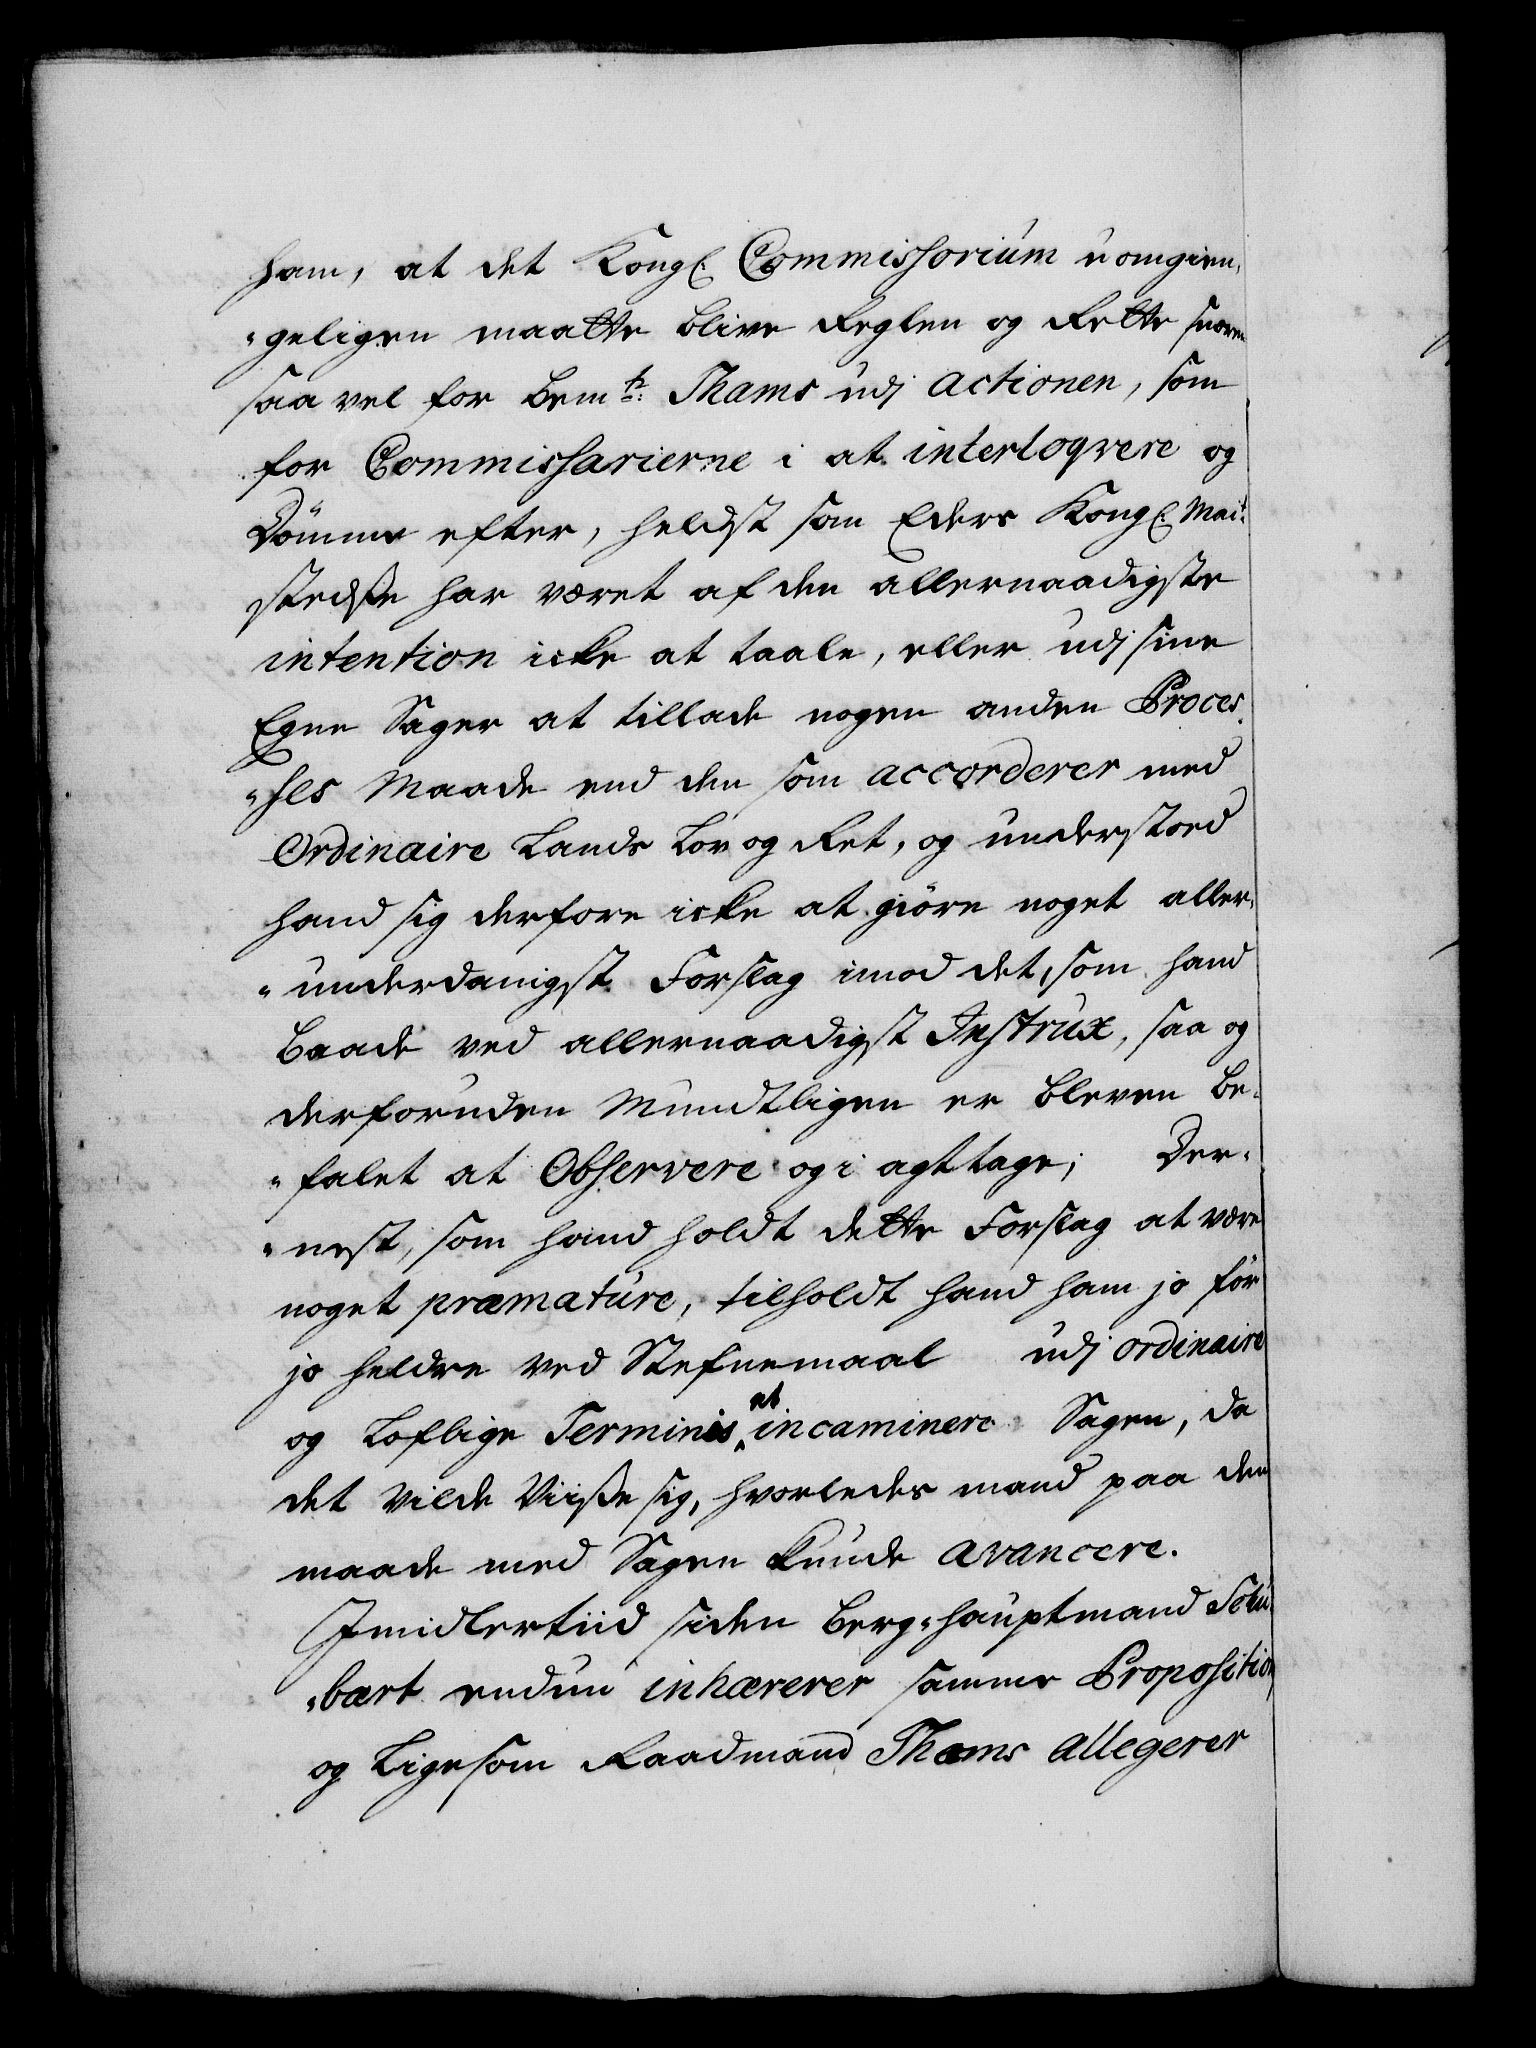 ham, at det Kongl: Commissorium uomgien,
"geligen maatte blive Reglen og Rette snoren
saa vel for bemte: Thams udj Actionen, som
for Commissarierne i at interloqvere og
Dömme efter, heldst som Eders Kongl: Mait:
stedße har været af den allernaadigste
intention icke at taale, eller udj sine
Egne Sager at tillade nogen anden Proces,
"ses Maade end den som accorderer med
Ordinaire Lands Lov og Ret, og understoed
hand sig derfore icke at giöre noget aller,
"underdanigst Forslag imod det, som hand
baade ved allernaadigst Instrux, saa og
derforuden Mundtligen er bleven be,
"falet at Observere og i agttage; Der,
"nest, som hand holdt dette Forslag at være
noget præmature, tilholdt hand ham jo för
jo heldre ved Stefnemaal udj ordinaire
og Loflige Terminis at incaminere Sagen, da
det vilde Viiße sig, hvorledes mand paa den
maade med Sagen kunde avancere.
Imidlertiid siden Berg-hauptmand Schu
"bart endnu inhærerer samme Proposition,
og Ligesom Raadmand Thams allegerer